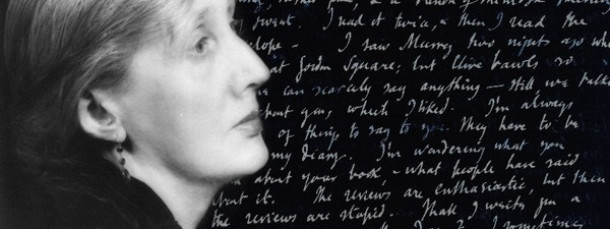 I read it twice, & then I read the
I saw Murry two nights ago
at Gordon Square; but Clive bawls so
can scarcely say anything — still we talked
about you, which I liked. I'm always
of things to say to you. They have to be
my diary. I'm wondering what you
about your book, — what people have said
about it. The reviews are enthusiastic, but then
the reviews are stupid. Shall I write you a
I sometimes